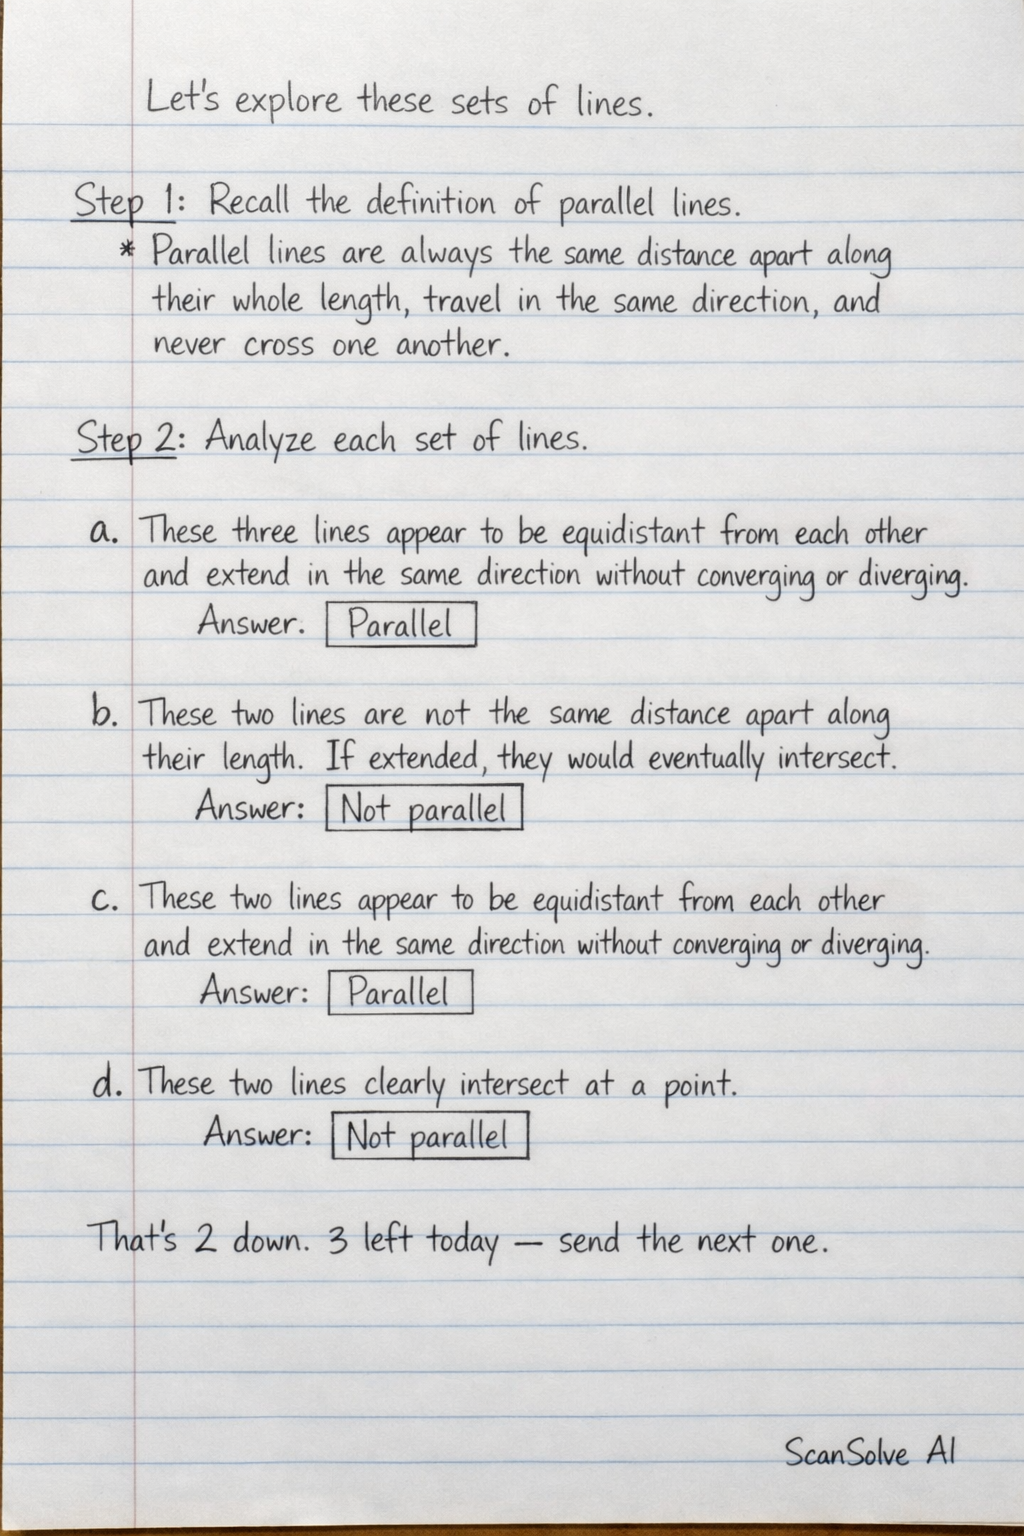 Let's explore these sets of lines.
Step 1: Recall the definition of parallel lines.
* Parallel lines are always the same distance apart along
their whole length, travel in the same direction, and
never cross one another.
Step 2: Analyze each set of lines.
a. These three lines appear to be equidistant from each other
and extend in the same direction without converging or diverging.
Answer. Parallel
b. These two lines are not the same distance apart along
their length. If extended, they would eventually intersect.
Answer: Not parallel
c. These two lines appear to be equidistant from each other
and extend in the same direction without converging or diverging.
Answer: Parallel
d. These two lines clearly intersect at a point.
Answer: Not parallel
That's 2 down. 3 left today — send the next one.
ScanSolve AI